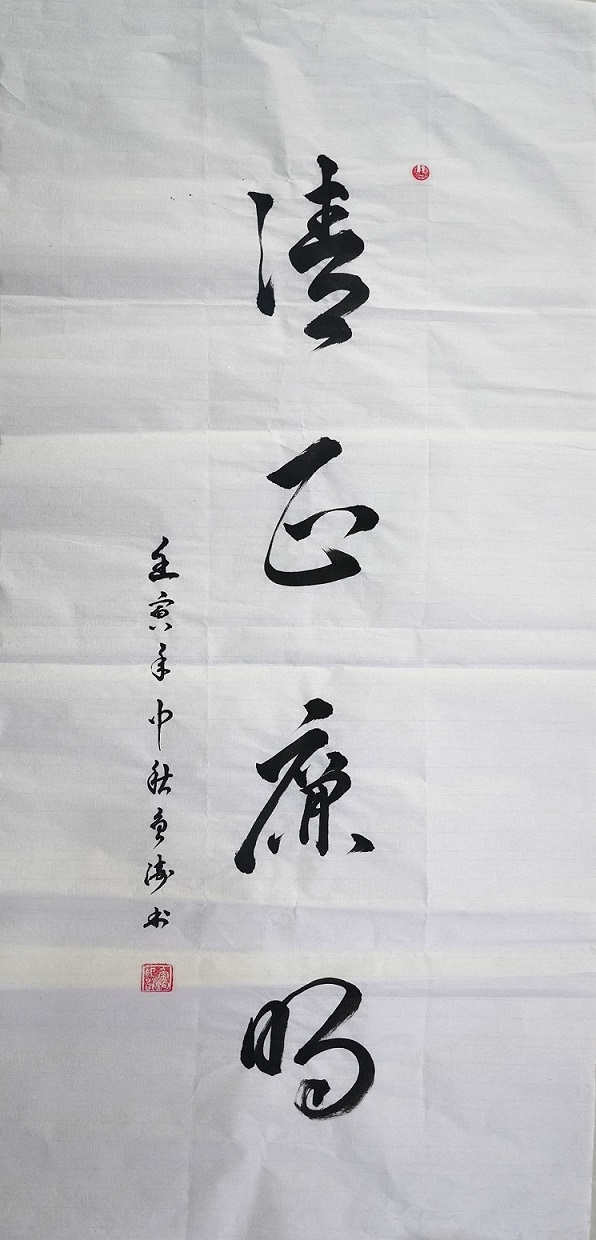 清正廉明
壬寅年中秋